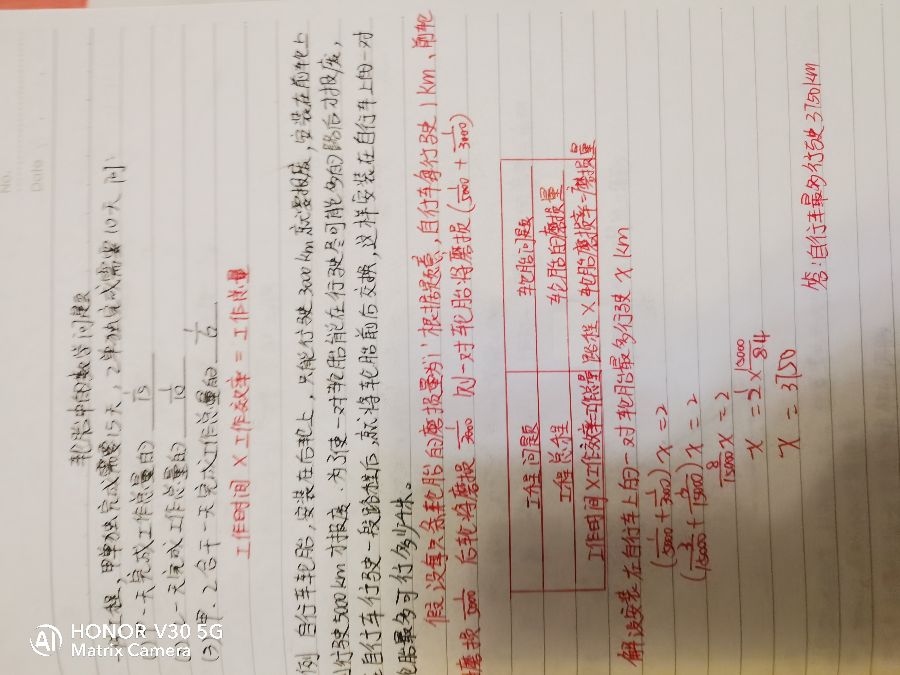 No.
Date
轮胎中的数学问题
一项工程,甲单独完成需要15天,乙单独完成需要10天 问
(1) 甲一天完成工作总量的 1/15
(2) 乙一天完成工作总量的 1/10
(3) 甲、乙合干一天完成工作总量的 1/6
工作时间 × 工作效率 = 工作总量
例 自行车轮胎,安装在后轮上,只能行驶3000km就要报废,安装在前轮上
行驶5000km才报废.为了使一对轮胎能在行驶尽可能多的路后才报废,
在自行车行驶一段路程后,就将轮胎前后交换,这样安装在自行车上的一对
轮胎最多可行多少千米.
假设每只条轮胎的磨损量为"1"根据题意,自行车每行驶1km、前轮
磨损 1/5000 后轮将磨损 1/3000 则一对轮胎将磨损(1/5000 + 1/3000)
工程问题 轮胎问题
工程总程 轮胎的磨损量
工作时间×工作效率=工作总量 路程×轮胎磨损率=磨损量
解设安装在自行车上的一对轮胎最多行驶 x km
(1/5000 + 1/3000) x = 2
(3/15000 + 5/15000) x = 2
8/15000 x = 2
x = 2 × 15000/8 4
x = 3750
答:自行车最多行驶3750km
HONOR V30 5G
Matrix Camera